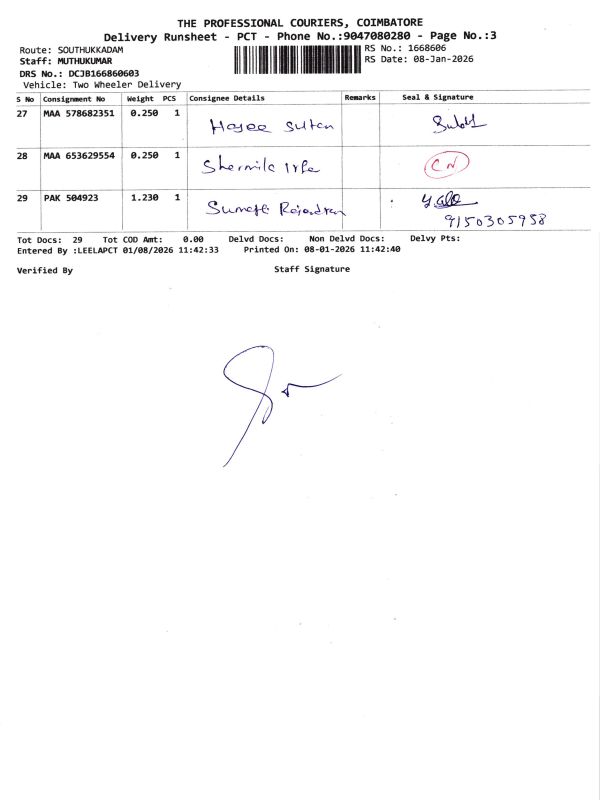 THE PROFESSIONAL COURIERS, COIMBATORE
Delivery Runsheet - PCT - Phone No.:9047080280 - Page No.:3
Route: SOUTHUKKADAM
RS No.: 1668606
Staff: MUTHUKUMAR
RS Date: 08-Jan-2026
DRS No.: DCJB166860603
Vehicle: Two Wheeler Delivery
S No Consignment No Weight PCS Consignee Details Remarks Seal & Signature
27 MAA 578682351 0.250 1 Hajee Sultan
28 MAA 653629554 0.250 1 Shermila CN
29 PAK 504923 1.230 1 Rajendran
9150305958
Tot Docs: 29 Tot COD Amt: 0.00 Delvd Docs: Non Delvd Docs: Delvy Pts:
Entered By :LEELAPCT 01/08/2026 11:42:33 Printed On: 08-01-2026 11:42:40
Verified By Staff Signature